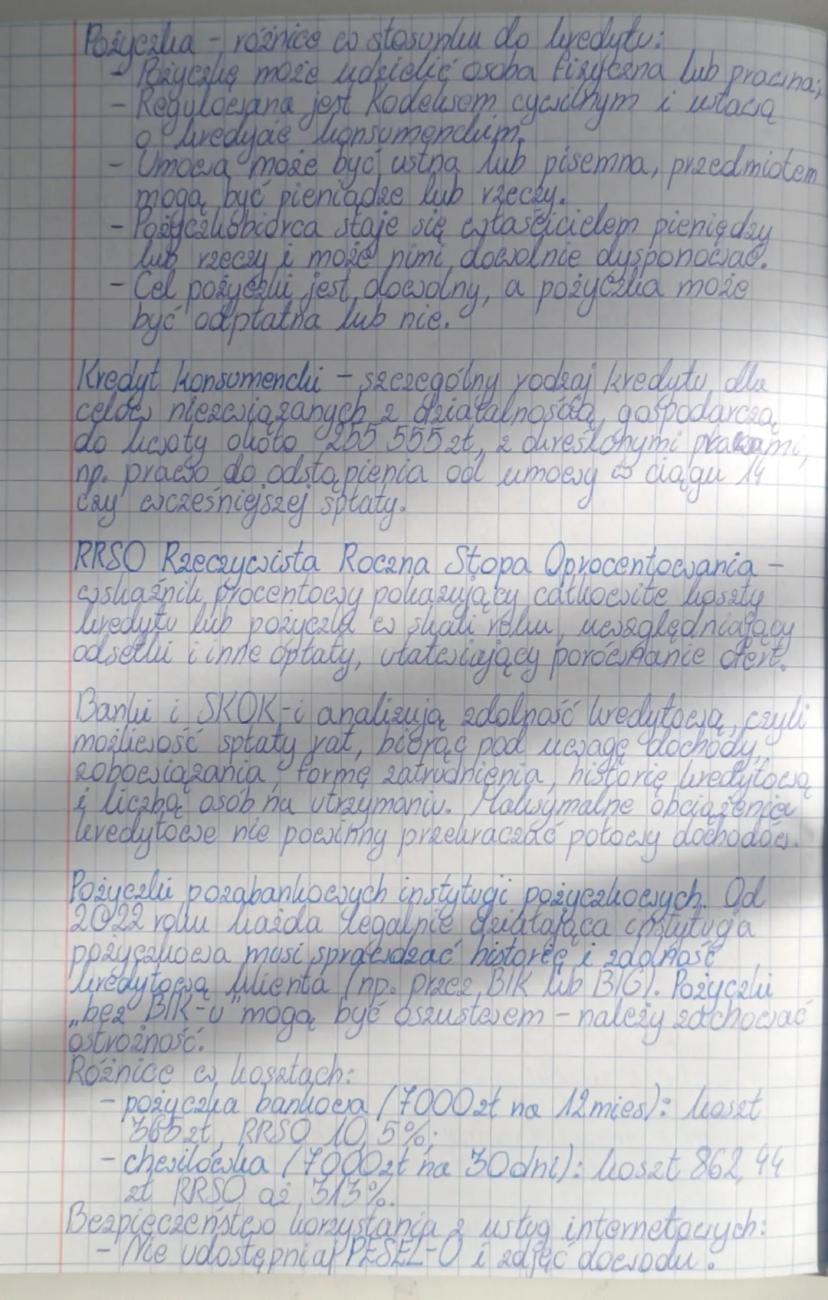 Pożyczka – różnice w stosunku do kredytu:
– Pożyczkę może udzielić osoba fizyczna lub prawna;
– Regulowana jest Kodeksem cywilnym i ustawą
o kredycie konsumenckim.
– Umowa może być ustna lub pisemna, przedmiotem
mogą być pieniądze lub rzeczy.
– Pożyczkobiorca staje się właścicielem pieniędzy
lub rzeczy i może nimi dowolnie dysponować.
– Cel pożyczki jest dowolny, a pożyczka może
być odpłatna lub nie.
Kredyt konsumencki – szczególny rodzaj kredytu dla
celów niezwiązanych z działalnością gospodarczą
do kwoty około 255 555 zł, z określonymi prawami,
np. prawo do odstąpienia od umowy w ciągu 14
czy wcześniejszej spłaty.
RRSO Rzeczywista Roczna Stopa Oprocentowania –
wskaźnik procentowy pokazujący całkowite koszty
kredytu lub pożyczki w skali roku, uwzględniający
odsetki i inne opłaty, ułatwiający porównanie ofert.
Banki i SKOK-i analizują zdolność kredytową, czyli
możliwość spłaty rat, biorąc pod uwagę dochody,
zobowiązania, formę zatrudnienia, historię kredytową
i liczbą osób na utrzymaniu. Maksymalne obciążenia
kredytowe nie powinny przekraczać połowy dochodów.
Pożyczki pozabankowych instytucji pożyczkowych. Od
2022 roku każda legalnie działająca instytucja
pożyczkowa musi sprawdzać historię i zdolność
kredytową klienta (np. przez BIK lub BIG). Pożyczki
„bez BIK-u" mogą być oszustwem – należy zachować
ostrożność.
Różnice w kosztach:
– pożyczka bankowa (7000 zł na 12 mies): koszt
365 zł, RRSO 10,5%;
– chwilówka (7000 zł na 30 dni): koszt 862,44
zł RRSO aż 313%.
Bezpieczeństwo korzystania z usług internetowych:
– Nie udostępniaj PESEL-U i zdjęć dowodu.